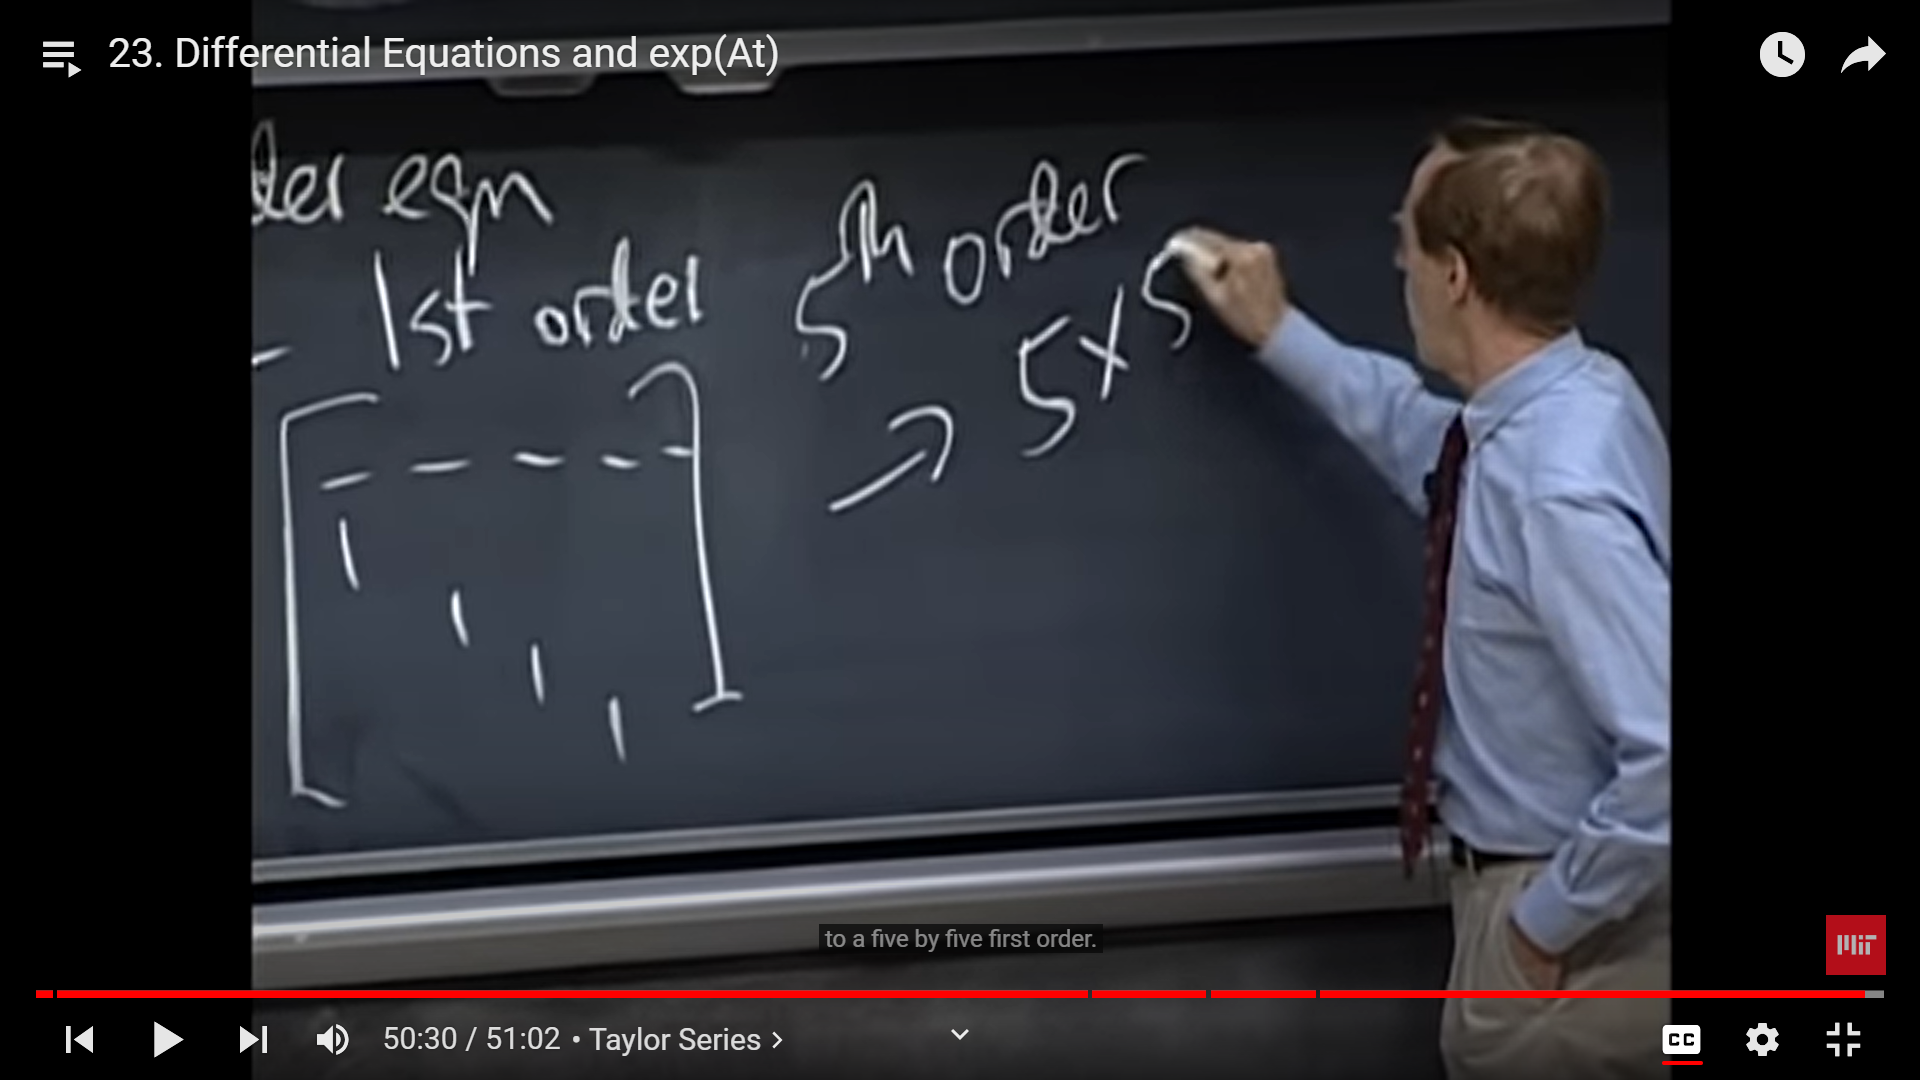 23. Differential Equations and exp(At)
der eqn
1st order
5th order
→ 5x5
to a five by five first order.
MIT
50:30 / 51:02 • Taylor Series >
CC